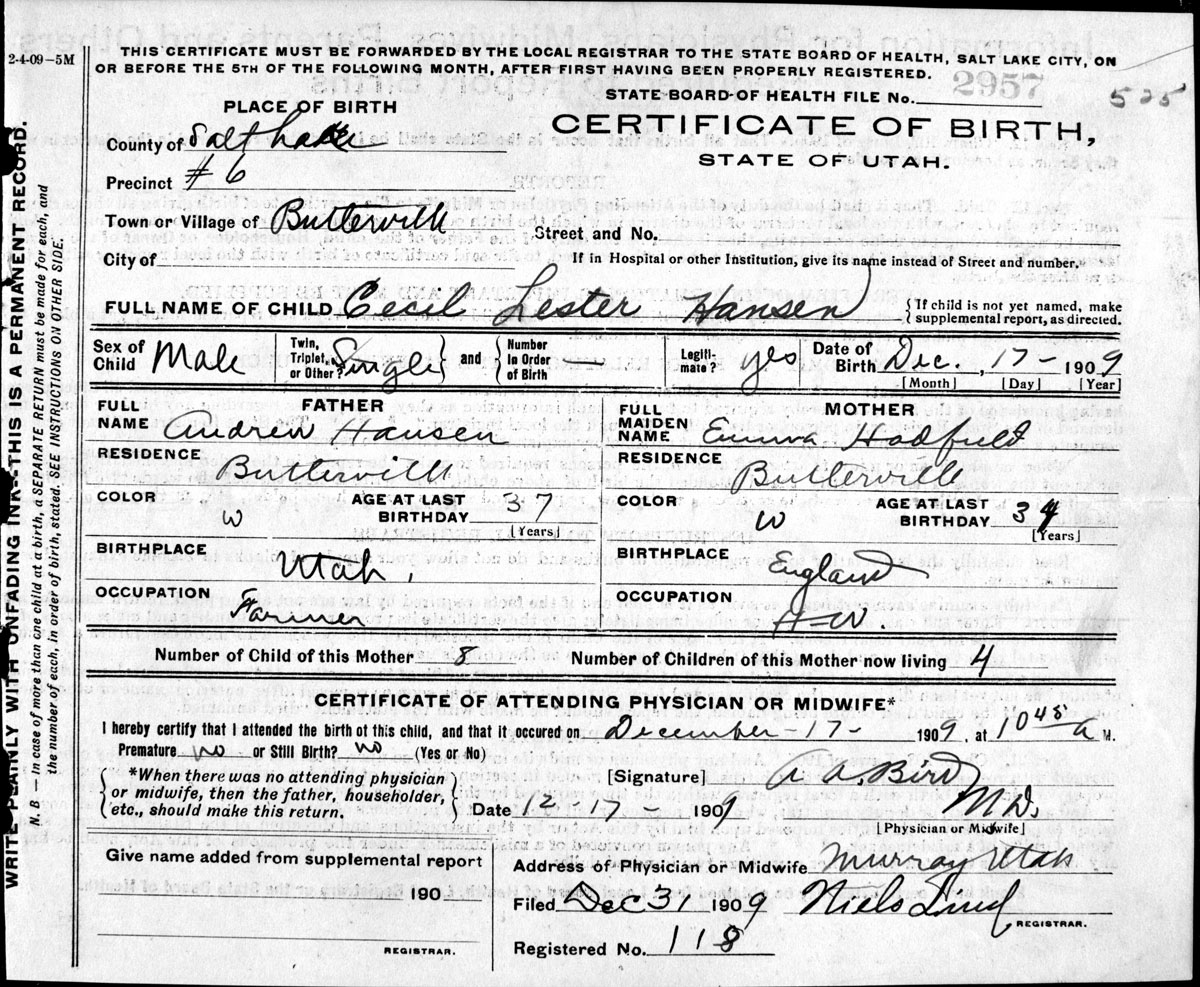 2-4-09-5M
THIS CERTIFICATE MUST BE FORWARDED BY THE LOCAL REGISTRAR TO THE STATE BOARD OF HEALTH, SALT LAKE CITY, ON
OR BEFORE THE 5TH OF THE FOLLOWING MONTH, AFTER FIRST HAVING BEEN PROPERLY REGISTERED.
STATE BOARD OF HEALTH FILE No. 2957 525
PLACE OF BIRTH
CERTIFICATE OF BIRTH,
STATE OF UTAH.
County of Salt Lake
Precinct #6
Town or Village of Butlerville Street and No.
City of If in Hospital or other Institution, give its name instead of Street and number.
FULL NAME OF CHILD Cecil Lester Hansen { If child is not yet named, make supplemental report, as directed.
Sex of Child Male Twin, Triplet, or Other? Single } and { Number in Order of Birth Legiti- mate? yes Date of Birth Dec. 17- 1909
[Month] [Day] [Year]
FATHER MOTHER
FULL NAME Andrew Hansen FULL MAIDEN NAME Emma Hadfield
RESIDENCE Butlerville RESIDENCE Butlerville
COLOR W AGE AT LAST BIRTHDAY 37 [Years] COLOR W AGE AT LAST BIRTHDAY 34 [Years]
BIRTHPLACE Utah, BIRTHPLACE England
OCCUPATION Farmer OCCUPATION H=W
Number of Child of this Mother 8 Number of Children of this Mother now living 4
CERTIFICATE OF ATTENDING PHYSICIAN OR MIDWIFE*
I hereby certify that I attended the birth of this child, and that it occured on December-17- 1909, at 10 45 a M.
Premature no or Still Birth? no (Yes or No)
{ *When there was no attending physician
or midwife, then the father, householder,
etc., should make this return. }
[Signature] A. Bird M.D.
Date 12-17- 1909
[Physician or Midwife]
Give name added from supplemental report
190
REGISTRAR.
Address of Physician or Midwife Murray Utah
Filed Dec 31 1909 Niels Lind
REGISTRAR.
Registered No. 118
WRITE PLAINLY WITH UNFADING INK--THIS IS A PERMANENT RECORD.
N. B.—In case of more than one child at a birth, a SEPARATE RETURN must be made for each, and
the number of each, in order of birth, stated. SEE INSTRUCTIONS ON OTHER SIDE.